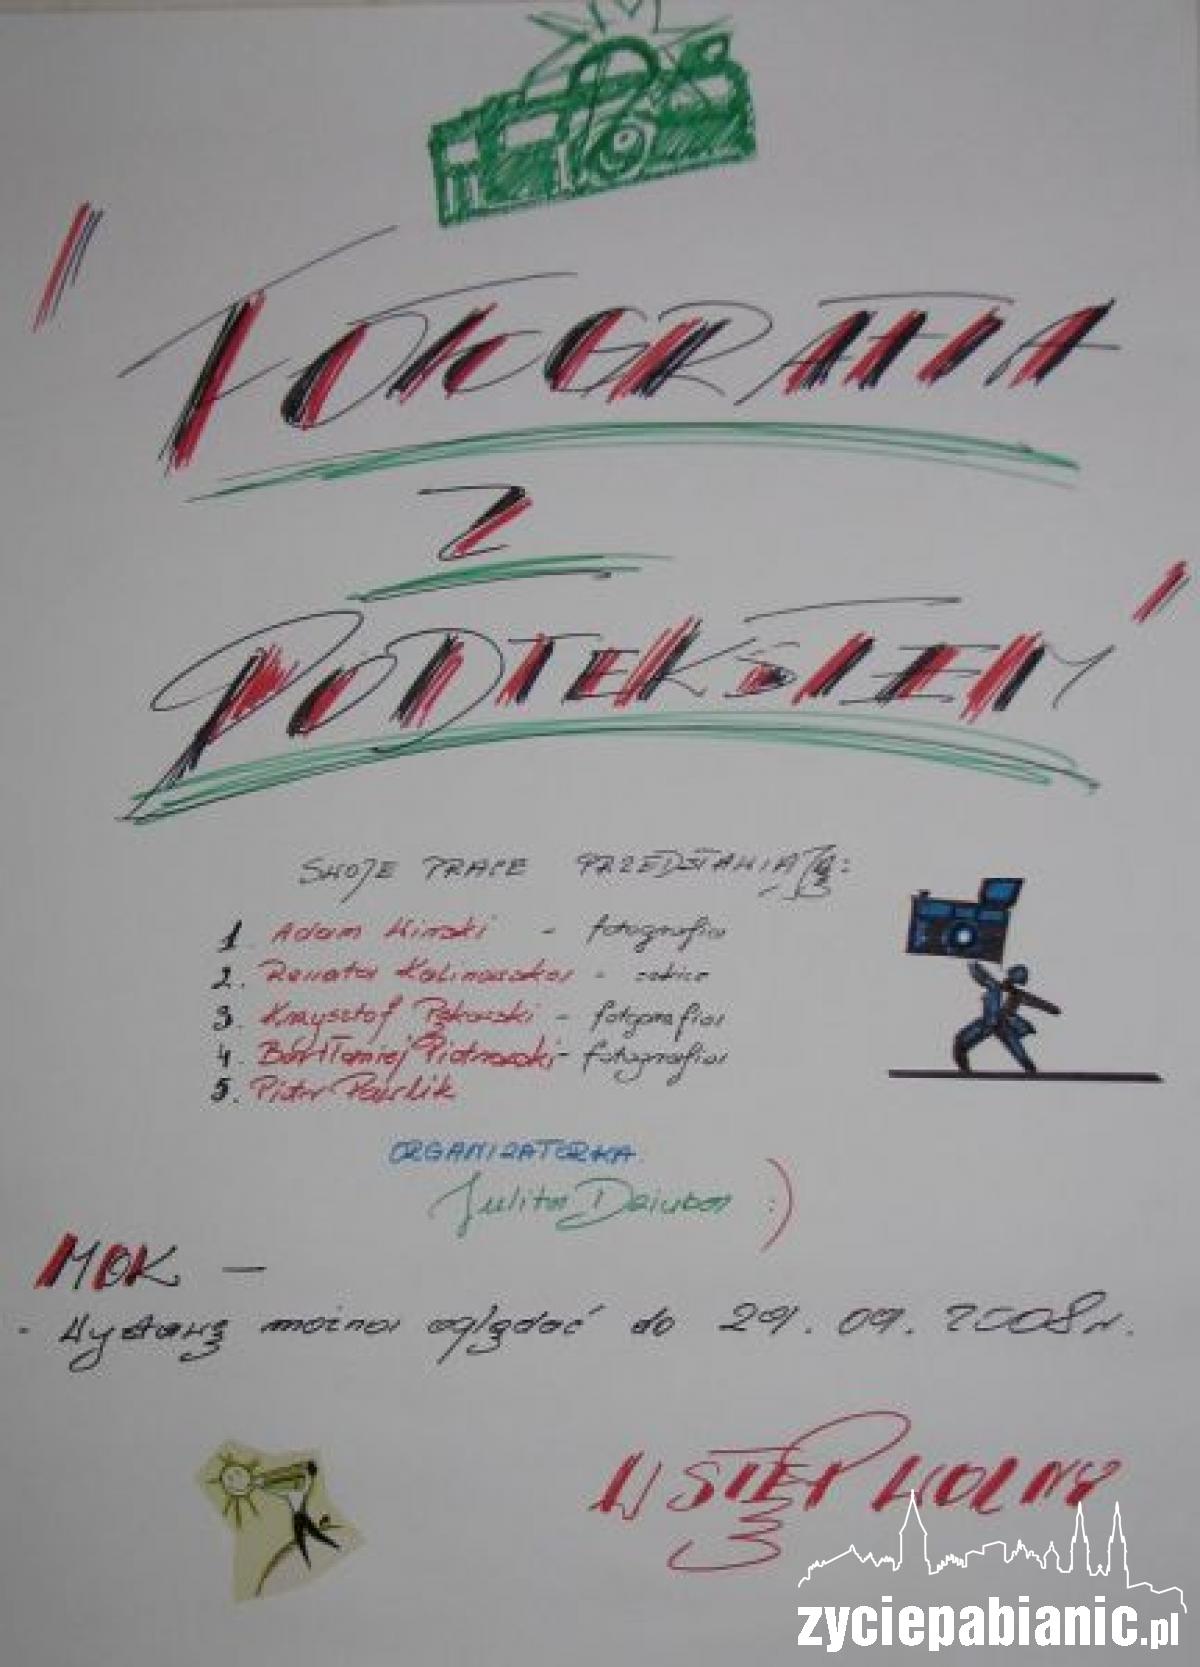 "FOTOGRAFIA
Z
PODTEKSTEM"
SWOJE PRACE PRZEDSTAWIAJĄ:
1. Adam Kinski - fotografia
2. Renata Kalinowska -
3. Krzysztof Pękowski - fotografia
4. Bartłomiej Piotrowski - fotografia
5. Piotr Pawlik
ORGANIZATORKA
Julita Dziuba :)
MOK -
- Wystawę można oglądać do 29.09.2008r.
WSTĘP WOLNY
zyciepabianic.pl